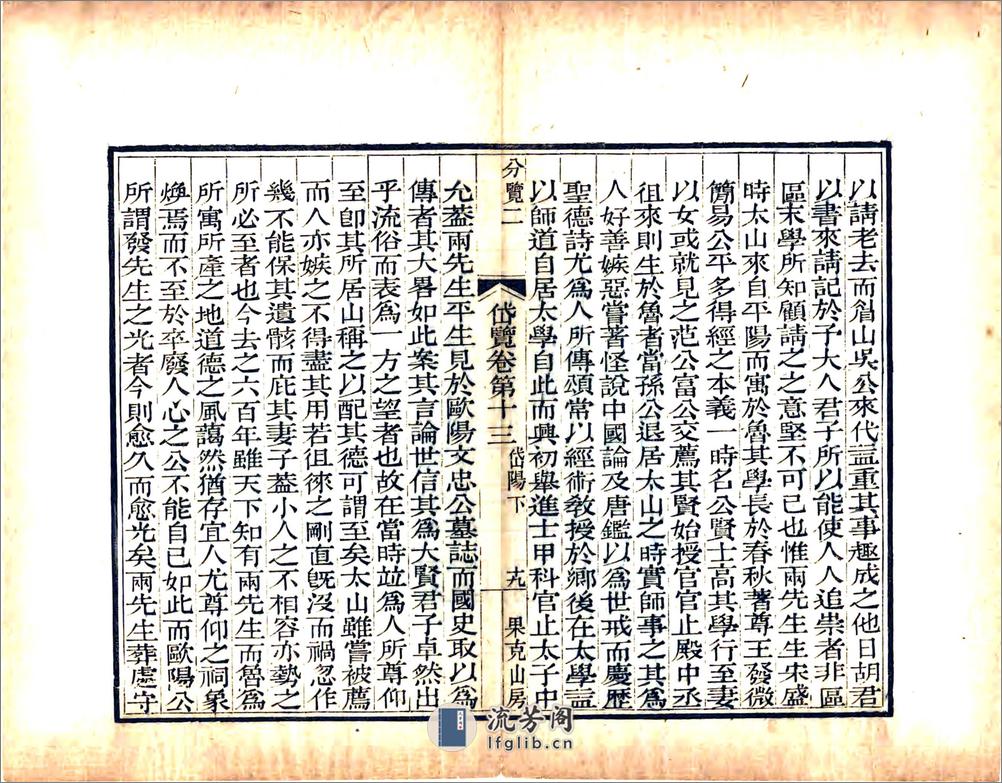 以請老去而眉山吳公來代益重其事趣成之他日胡君
以書來請記於予大人君子所以能使人人追崇者非區
區末學所知顧請之之意堅不可已也惟兩先生生宋盛
時太山來自平陽而寓於魯其學長於春秋著尊王發微
簡易公平多得經之本義一時名公賢士高其學行至妻
以女或就見之范公富公交薦其賢始授官官止殿中丞
徂來則生於魯者當孫公退居太山之時實師事之其爲
人好善嫉惡嘗著怪說中國論及唐鑑以爲世戒而慶歷
聖德詩尤爲人所傳頌常以經術敎授於鄉後在太學益
以師道自居太學自此而興初舉進士甲科官止太子中
分覽二
岱覽卷第十三 岱陽下 十九 果克山房
允葢兩先生平生見於歐陽文忠公墓誌而國史取以爲
傳者其大畧如此案其言論世信其爲大賢君子卓然出
乎流俗而表爲一方之望者也故在當時竝爲人所尊仰
至卽其所居山稱之以配其德可謂至矣太山雖嘗被薦
而人亦嫉之不得盡其用若徂徠之剛直旣沒而禍忽作
幾不能保其遺骸而庇其妻子葢小人之不相容亦勢之
所必至者也今去之六百年雖天下知有兩先生而魯爲
所寓所產之地道德之風藹然猶存宜人尤尊仰之祠象
煥焉而不至於卒廢人心之公不能自已如此而歐陽公
所謂發先生之光者今則愈久而愈光矣兩先生葬處守
流芳阁
lfglib.cn